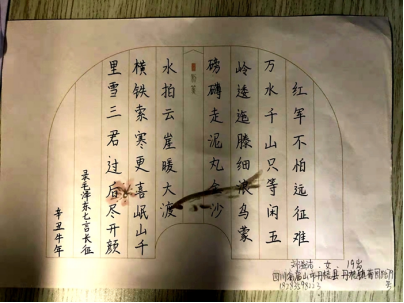 红军不怕远征难
万水千山只等闲五
岭逶迤腾细浪乌蒙
磅礴走泥丸金沙
水拍云崖暖大渡
横铁索寒更喜岷山千
里雪三君过后尽开颜
录毛泽东七言长征
辛丑牛年
女 19岁
四川省眉山市丹棱县